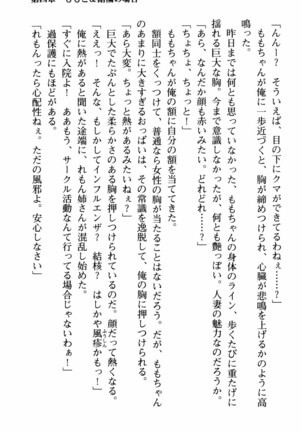 「んんー？　そういえば、目の下にクマができてるわねぇ……？」
ももちゃんが俺に一歩近づくと、胸が締めつけられ、心臓が悲鳴を上げるかのように高
鳴った。
昨日までは何とも思っていなかった、ももちゃんの身体のライン、歩くたびに重たげに
揺れる巨大な胸。今まで意識しなかったが、何とも艶っぽい。人妻の魅力なのだろうか。
「あら、なんだか顔も赤いみたい。どれどれ……？」
「ちょ、ちょっと……！」
ももちゃんが俺の額に自分の額を当ててきた。
額同士をくっつけて、普通なら女性の胸が当たることはないだろう。だが、ももちゃん
のあまりに大きすぎるおっぱいは、その常識を逸脱して、俺の胸に押しつけられる。
「あら大変。ちょっと熱があるみたいねぇ？」
巨大でたぷんとした柔らかさのある胸を押しつけられているのだ。顔だって熱くなる。
「ええっ！　そんな、もしかしてインフルエンザ？　結核？　はしかや風疹かもっ！」
俺に熱があると聞いた途端に、れもん姉さんが混乱し始めた。
「すぐに入院よ！　あああもう、サークル活動なんて行ってる場合じゃないわぁ！」
過保護にもほどがある。
「れもんったら心配性ねぇ。ただの風邪よ。安心しなさい」